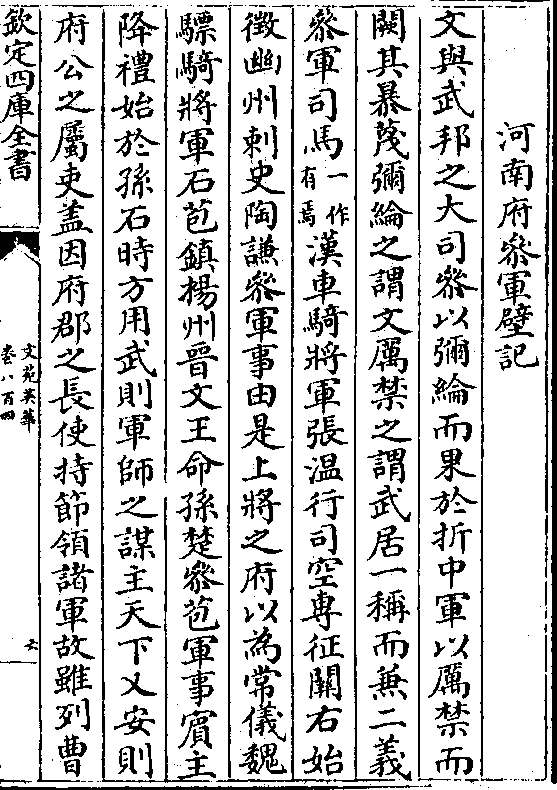 河南府叅軍壁記
文與武邦之大司叅以彌綸而果於折中軍以厲禁而
闕其暴蔑彌綸之謂文厲禁之謂武居一稱而兼二義
叅軍司馬一作有焉漢車騎將軍張温行司空專征關右始
徵幽州刺史陶謙叅軍事由是上將之府以為常儀魏
驃騎將軍石苞鎮揚州晉文王命孫楚叅苞軍事賓主
降禮始於孫石時方用武則軍師之謀主天下乂安則
府公之屬吏盖因府郡之長使持節領諸軍故雖列曹
欽定四庫全書
文苑英華
卷八百四